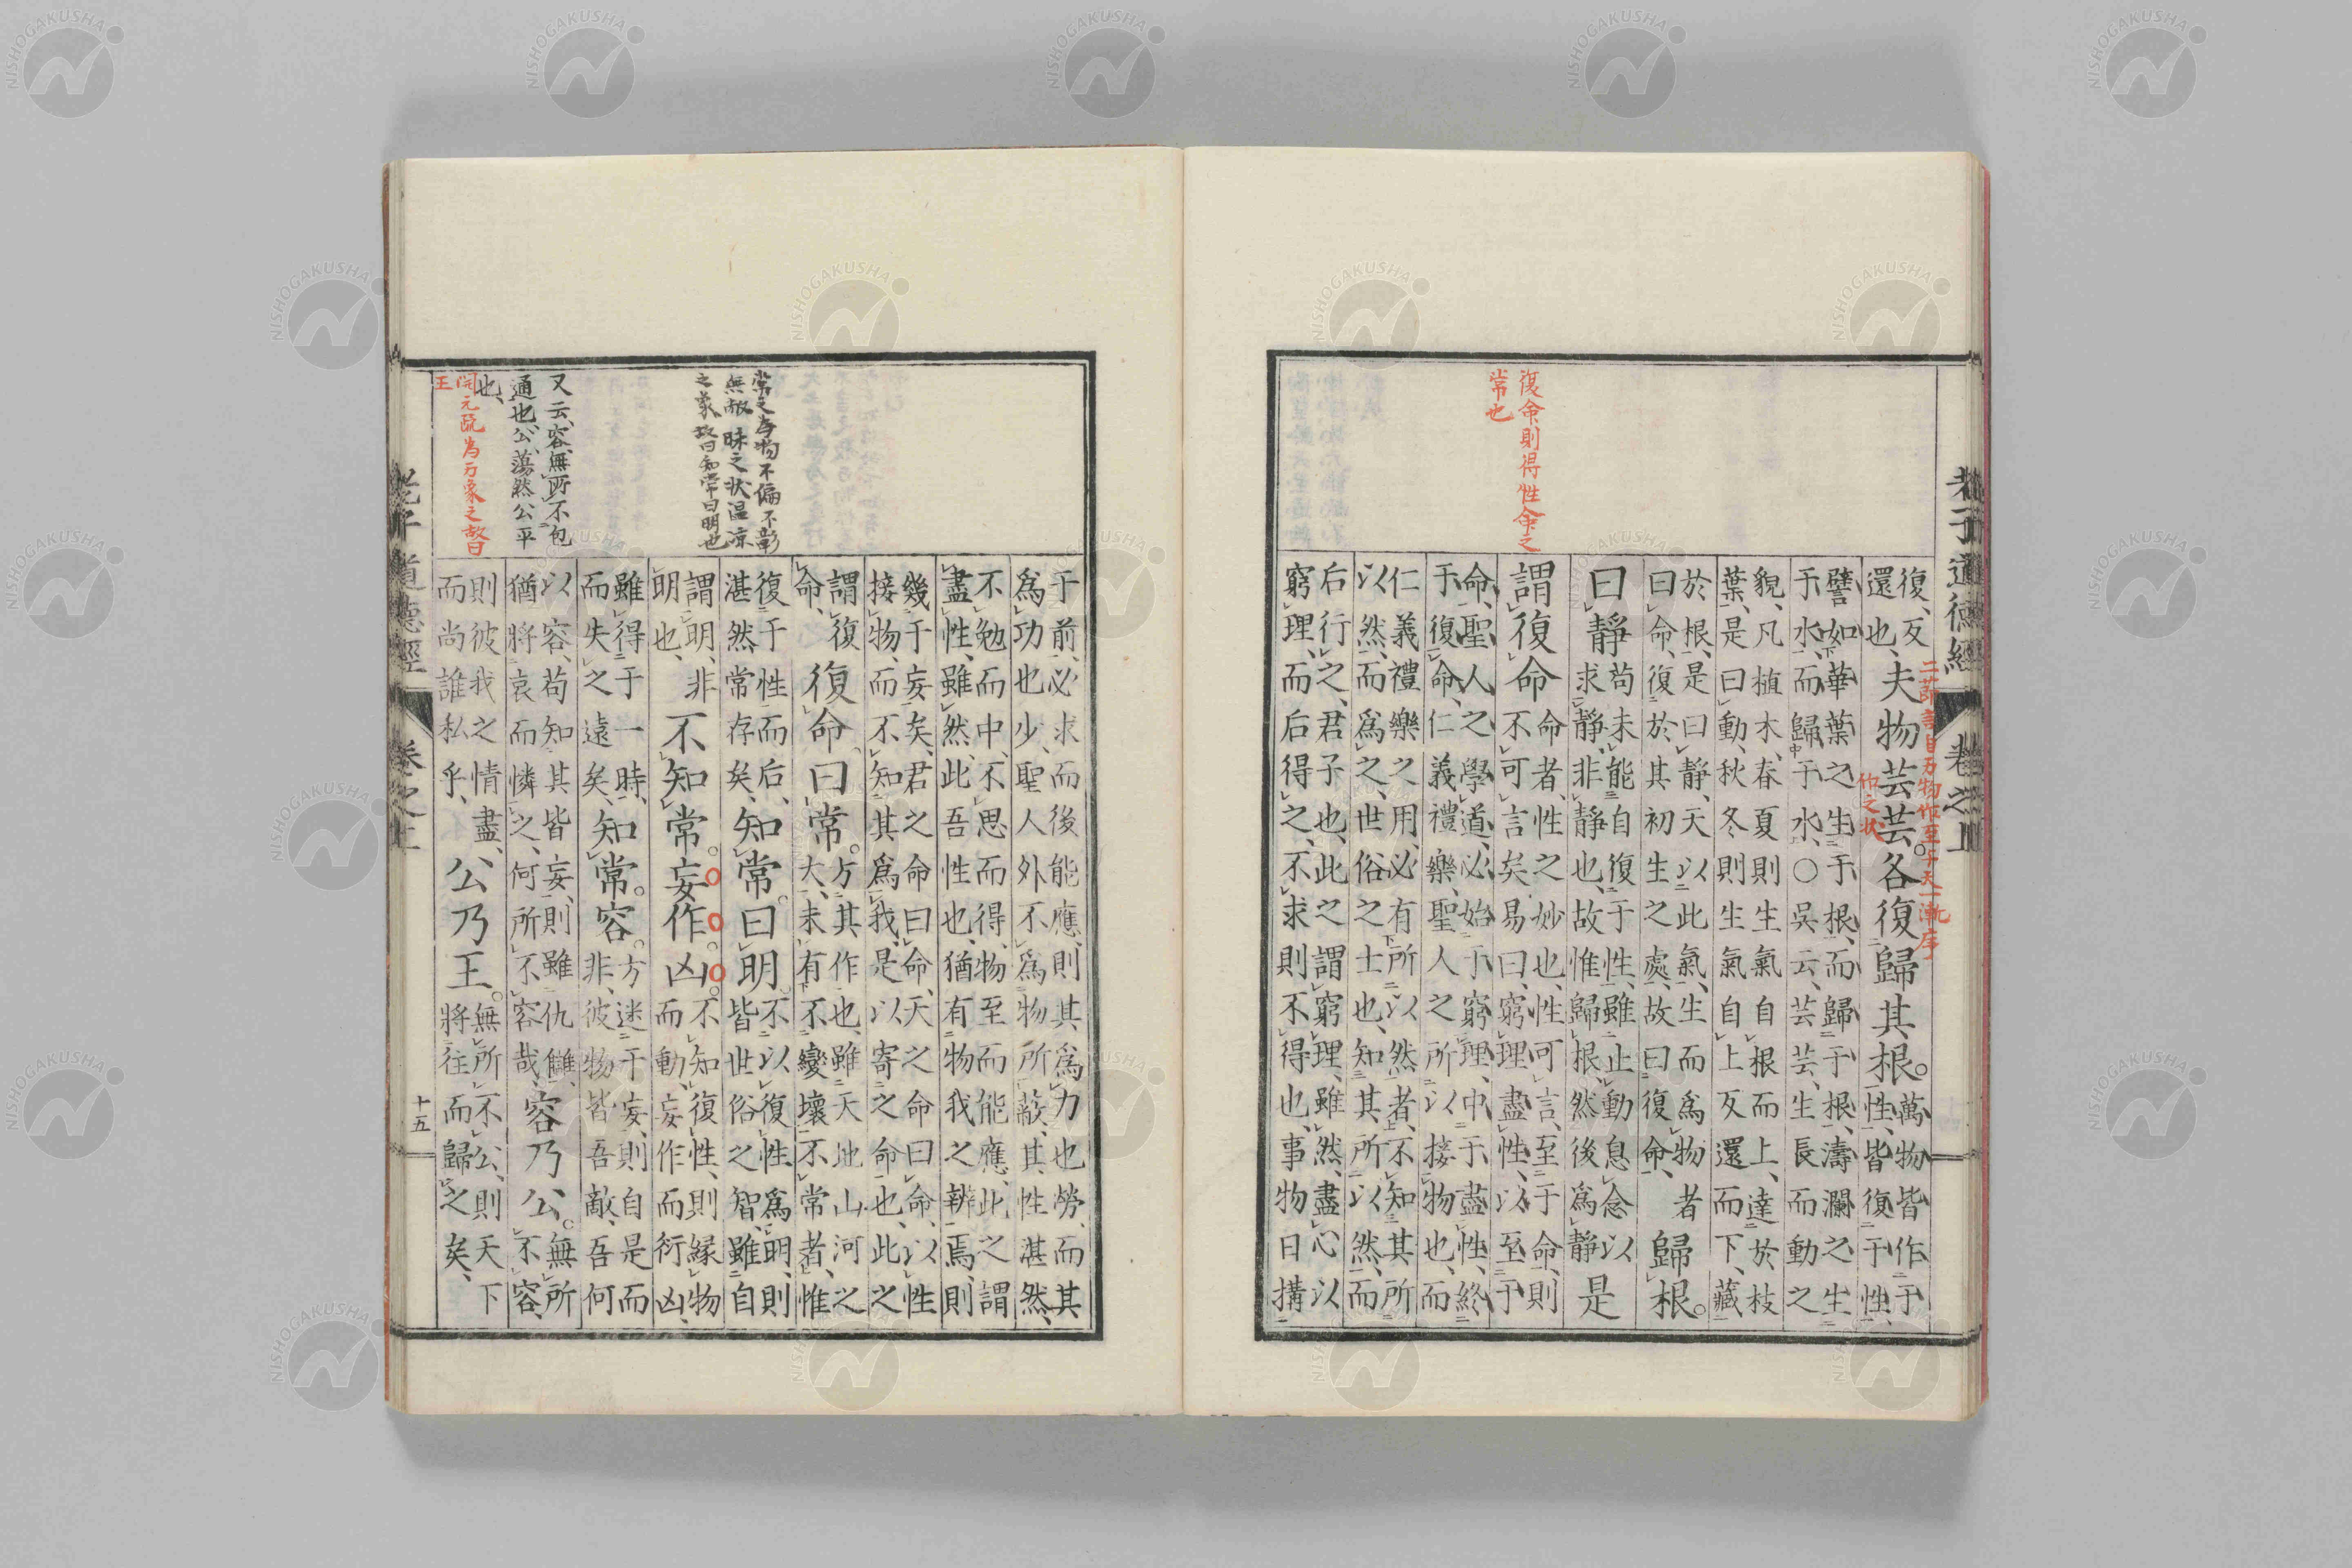 老子道德經 卷之上
二節言自万物作至于天一漸序
作之状
復命則得性命之
常也
復、反
還也、
夫物芸芸。各復歸其根。
萬物皆作于
性、皆復于性、
譬如華葉之生于根、而歸于根、濤瀾之生
于水、而歸于水、〇吳云、芸芸、生長而動之
貌、凡植木、春夏則生氣自根而上、達於枝
葉、是曰動、秋冬則生氣自上反還而下、藏
於根、是曰靜、天以此氣、生而爲物者
曰命、復於其初生之處、故曰復命、
歸根。
曰靜
苟未能自復于性、雖止動息念以
求靜、非靜也、故惟歸根、然後爲靜
是
謂復命
命者、性之妙也、性可言、至于命、則
不可言矣、易曰、窮理盡性、以至于
命、聖人之學道、必始于窮理、中于盡性、終
于復命、仁義禮樂、聖人之所以接物也、而
仁義禮樂之用、必有所以然者、不知其所
以然、而爲之、世俗之士也、知其所以然、而
后行之、君子也、此之謂窮理、雖然、盡心以
窮理、而后得之、不求則不得也、事物日搆
常之存物不偏不彰
無敵昧之状温凉
之象故曰知常曰明也
又云、容、無所不包
通也、公、蕩然公平
也、
開元疏爲万象之故曰
王
于前、必求而後能應、則其爲力也勞、而其
爲功也少、聖人外不爲物所蔽、其性湛然、
不勉而中、不思而得、物至而能應、此之謂
盡性、雖然、此吾性也、猶有物我之辨焉、則
幾于妄矣、君之命曰命、天之命曰命、以性
接物、而不知其爲我、是以寄之命也、此之
謂復
命、
復命曰常。
方其作也、雖天地山河之
大、未有不變壞、不常者、惟
復于性而后、
湛然常存矣、
知常。曰明
不以復性爲明、則
皆世俗之智、雖自
謂明、非
明也、
不知常。妄作。凶。
不知復性、則緣物
而動、妄作而衍凶、
雖得于一時、
而失之遠矣、
知常。容。
方迷于妄、則自是而
非彼、物皆吾敵、吾何
以容、苟知其皆妄、則雖仇讎、
猶將哀而憐之、何所不容哉、
容乃公。
無所
不容、
則彼我之情盡、
而尚誰私乎、
公乃王。
無所不公、則天下
將往而歸之矣、
老子道德經 卷之上
十五